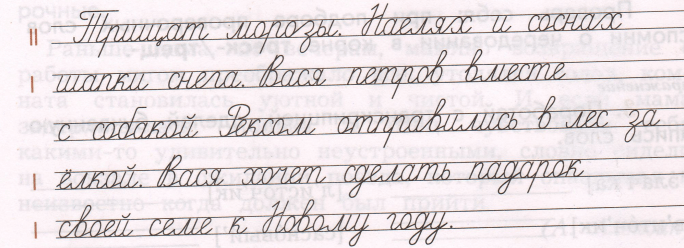 Трищат морозы. Наелях и соснах
шапки снега. Вася петров вместе
с собакой Рексом отправились в лес за
ёлкой. Вася хочет сделать падарок
своей семе к Новому году.